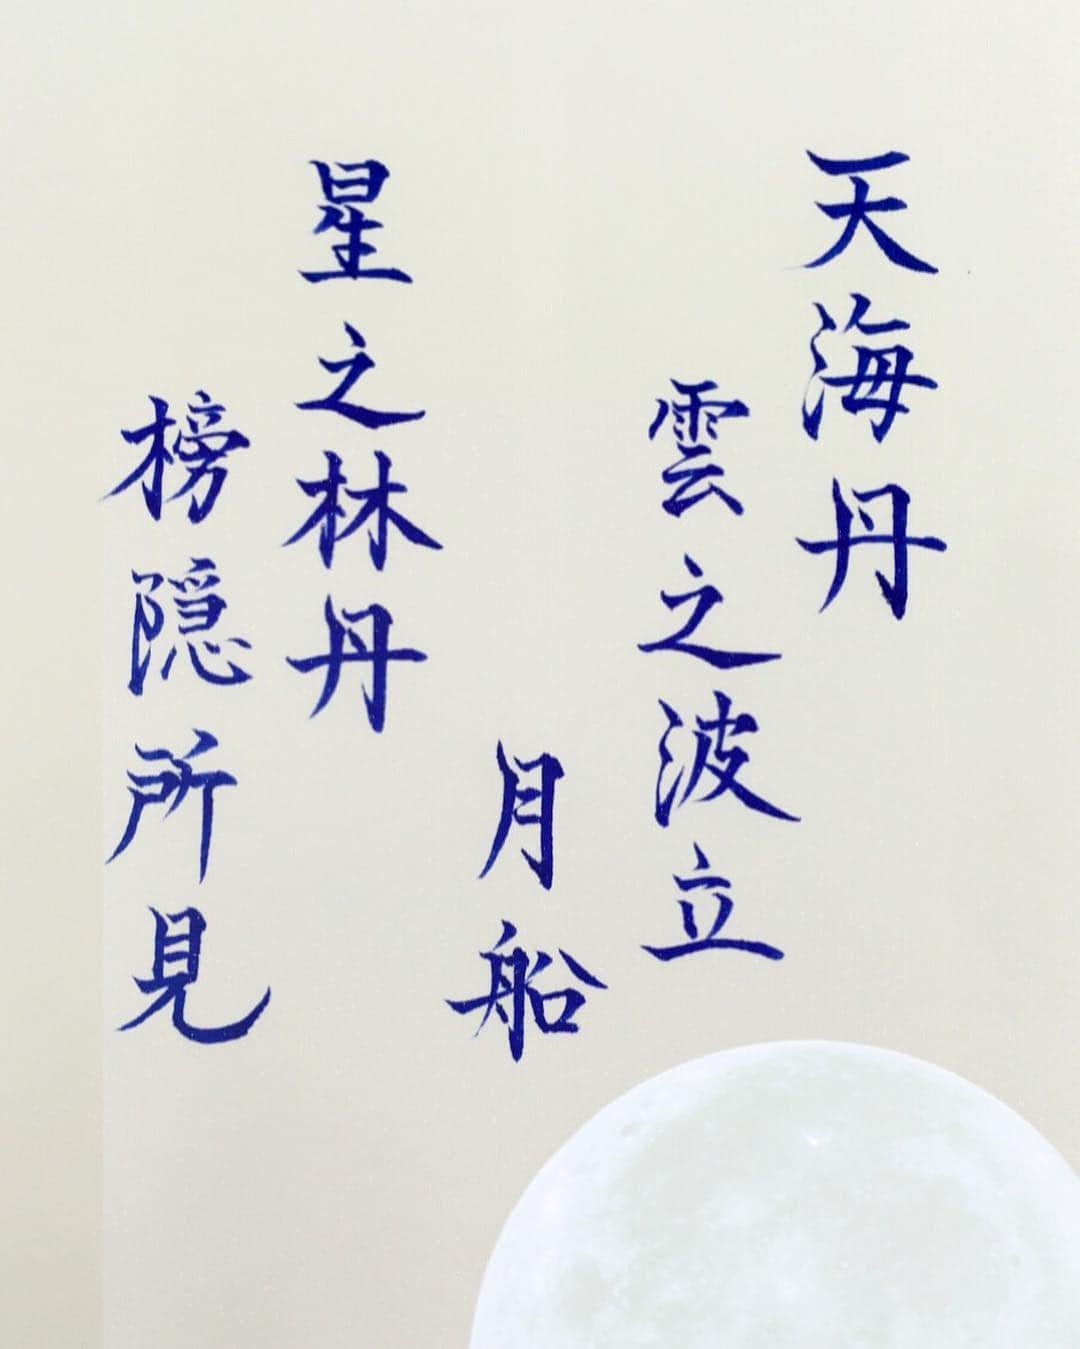 天海丹
雲之波立
月船
星之林丹
榜隠所見